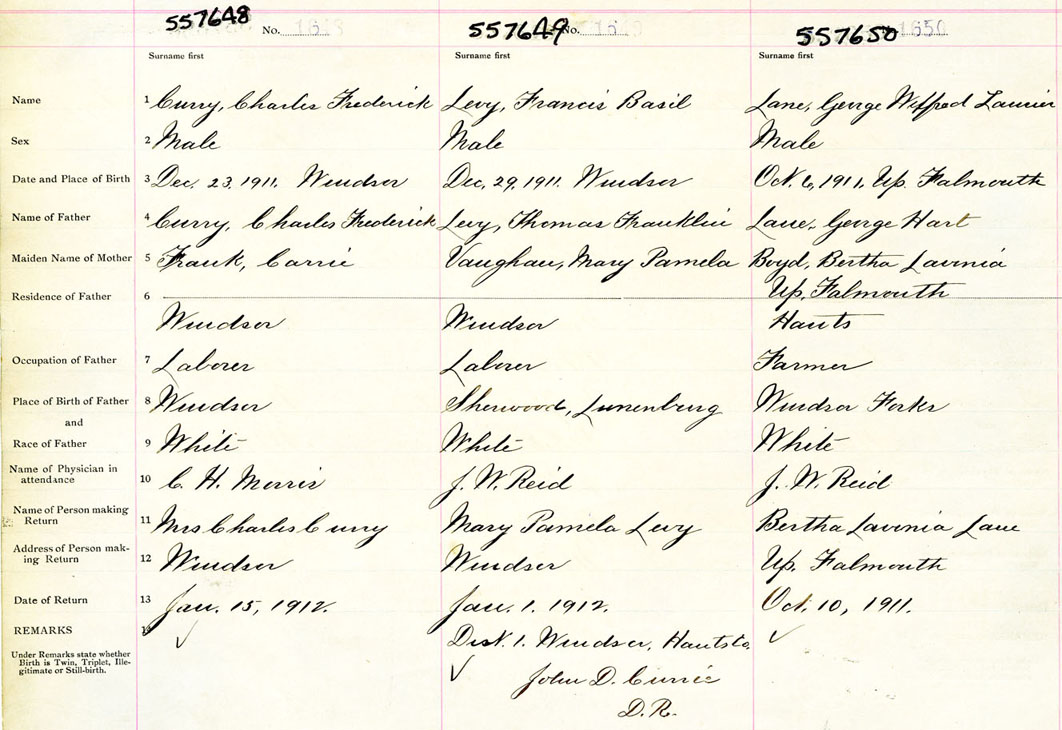 557648 557649 557650
No. 1648 No. 1649 1650
Surname first Surname first Surname first
Name 1 Curry, Charles Frederick Levy, Francis Basil Lane, George Wilfred Laurier
Sex 2 Male Male Male
Date and Place of Birth 3 Dec. 23, 1911. Windsor Dec. 29, 1911. Windsor Oct. 6, 1911, Up. Falmouth
Name of Father 4 Curry, Charles Frederick Levy, Thomas Franklin Lane, George Hart
Maiden Name of Mother 5 Frank, Carrie Vaughan, Mary Pamela Boyd, Bertha Lavinia
Residence of Father 6 Up. Falmouth
Windsor Windsor Hants
Occupation of Father 7 Laborer Laborer Farmer
Place of Birth of Father 8 Windsor Sherwood, Lunenburg Windsor Forks
and
Race of Father 9 White White White
Name of Physician in
attendance 10 C. H. Morris J. W. Reid J. W. Reid
Name of Person making
Return 11 Mrs Charles Curry Mary Pamela Levy Bertha Lavinia Lane
Address of Person mak-
ing Return 12 Windsor Windsor Up. Falmouth
Date of Return 13 Jan. 15, 1912. Jan. 1. 1912. Oct. 10, 1911.
REMARKS 14 ✓ Dist. 1. Windsor, Hants Co. ✓
Under Remarks state whether
Birth is Twin, Triplet, Ille-
gitimate or Still-birth.
✓ John D. Currie
D.R.